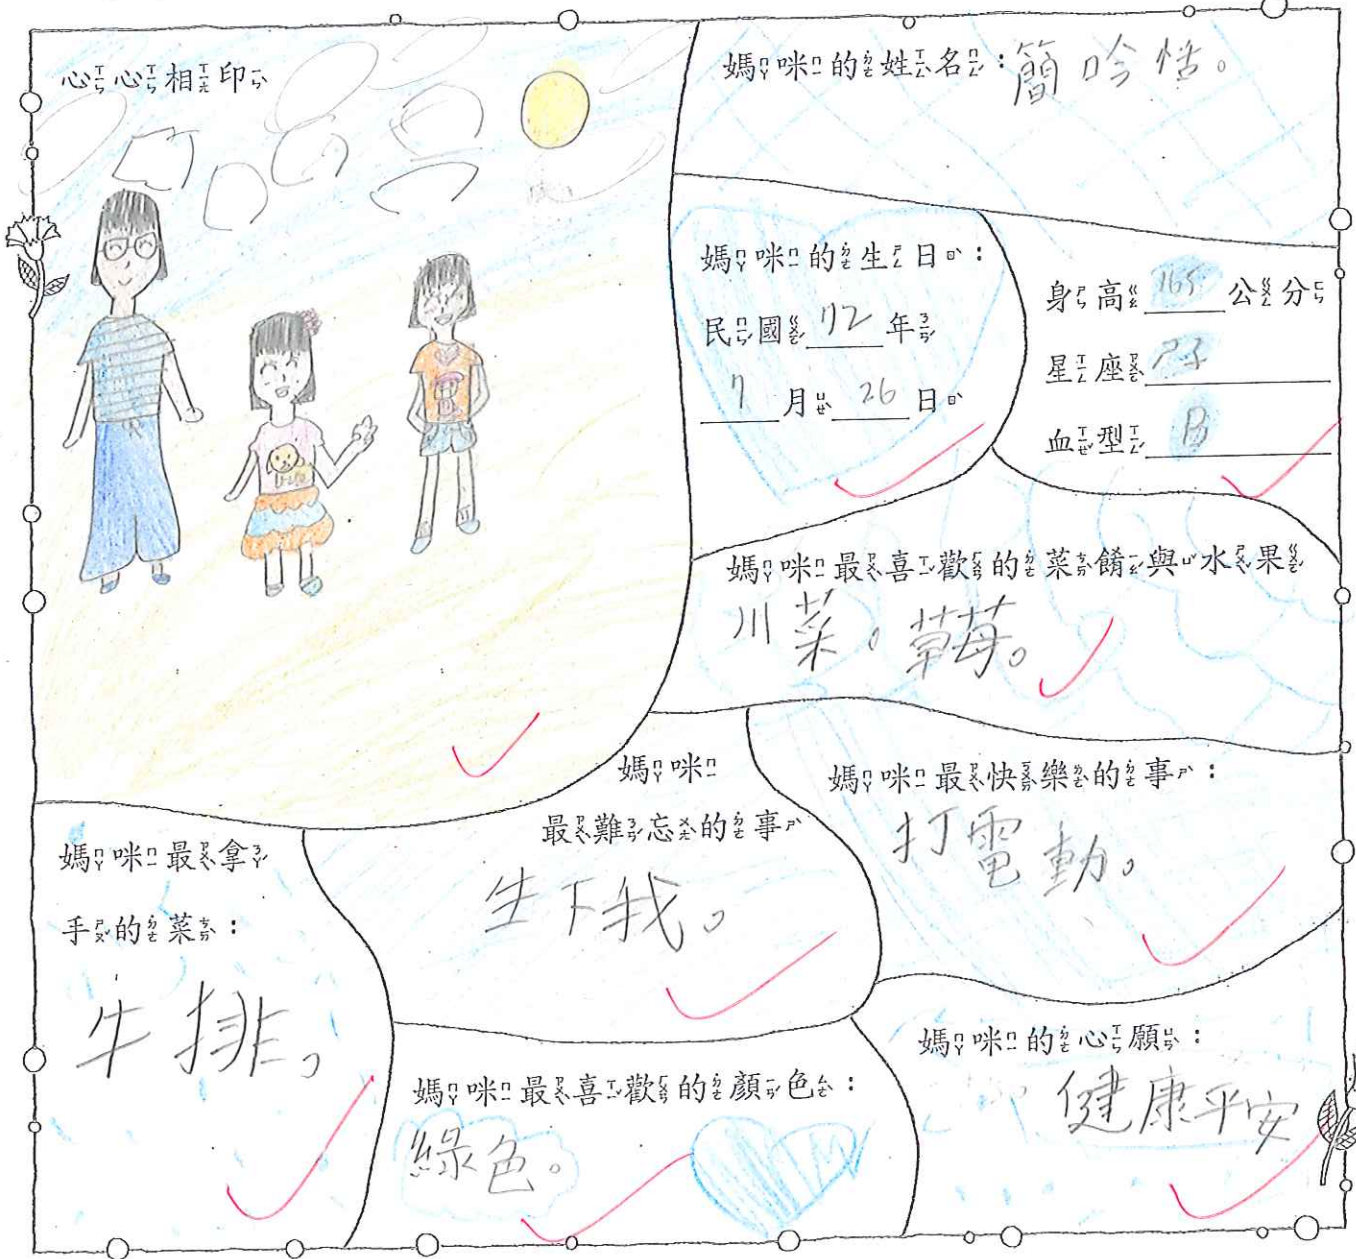 心心相印
媽咪的姓名：簡吟恬。
媽咪的生日：
民國72年
7月26日
身高165公分
星座
血型B
媽咪最喜歡的菜餚與水果
川菜。草莓。
媽咪
最難忘的事
生下我。
媽咪最快樂的事：
打電動。
媽咪最拿
手的菜：
牛排。
媽咪最喜歡的顏色：
綠色。
媽咪的心願：
健康平安